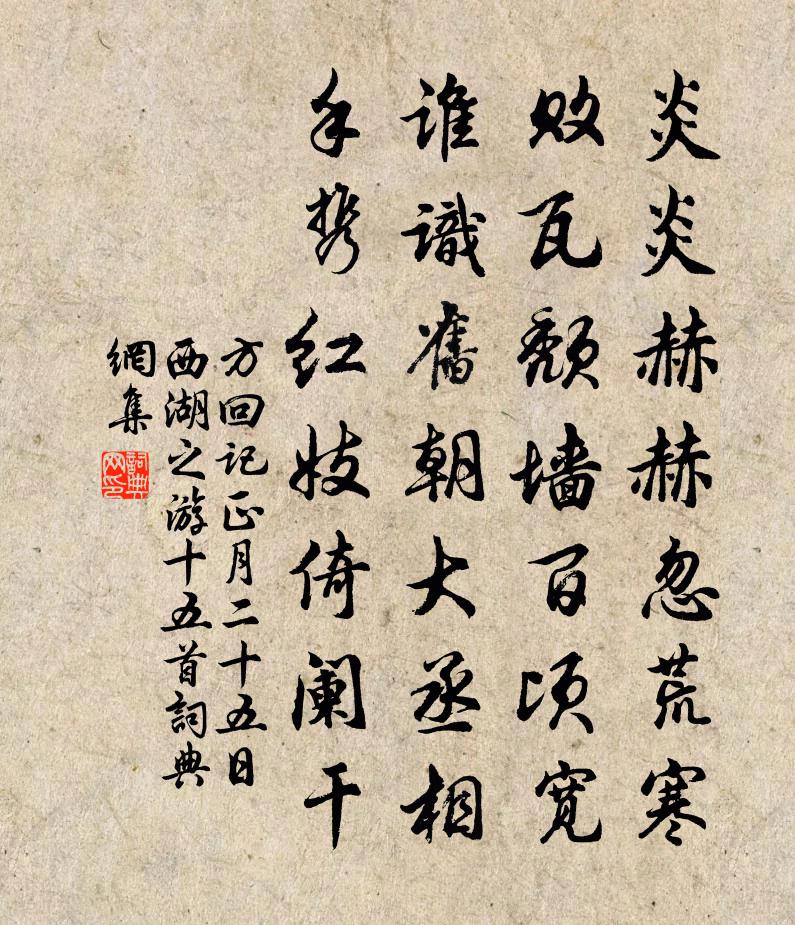 炎炎赫赫忽荒寒
败瓦颓墙百顷宽
谁識舊朝大丞相
手携红妓倚阑干
方回记正月二十五日
西湖之游十五首詞典
網集
詞典網印